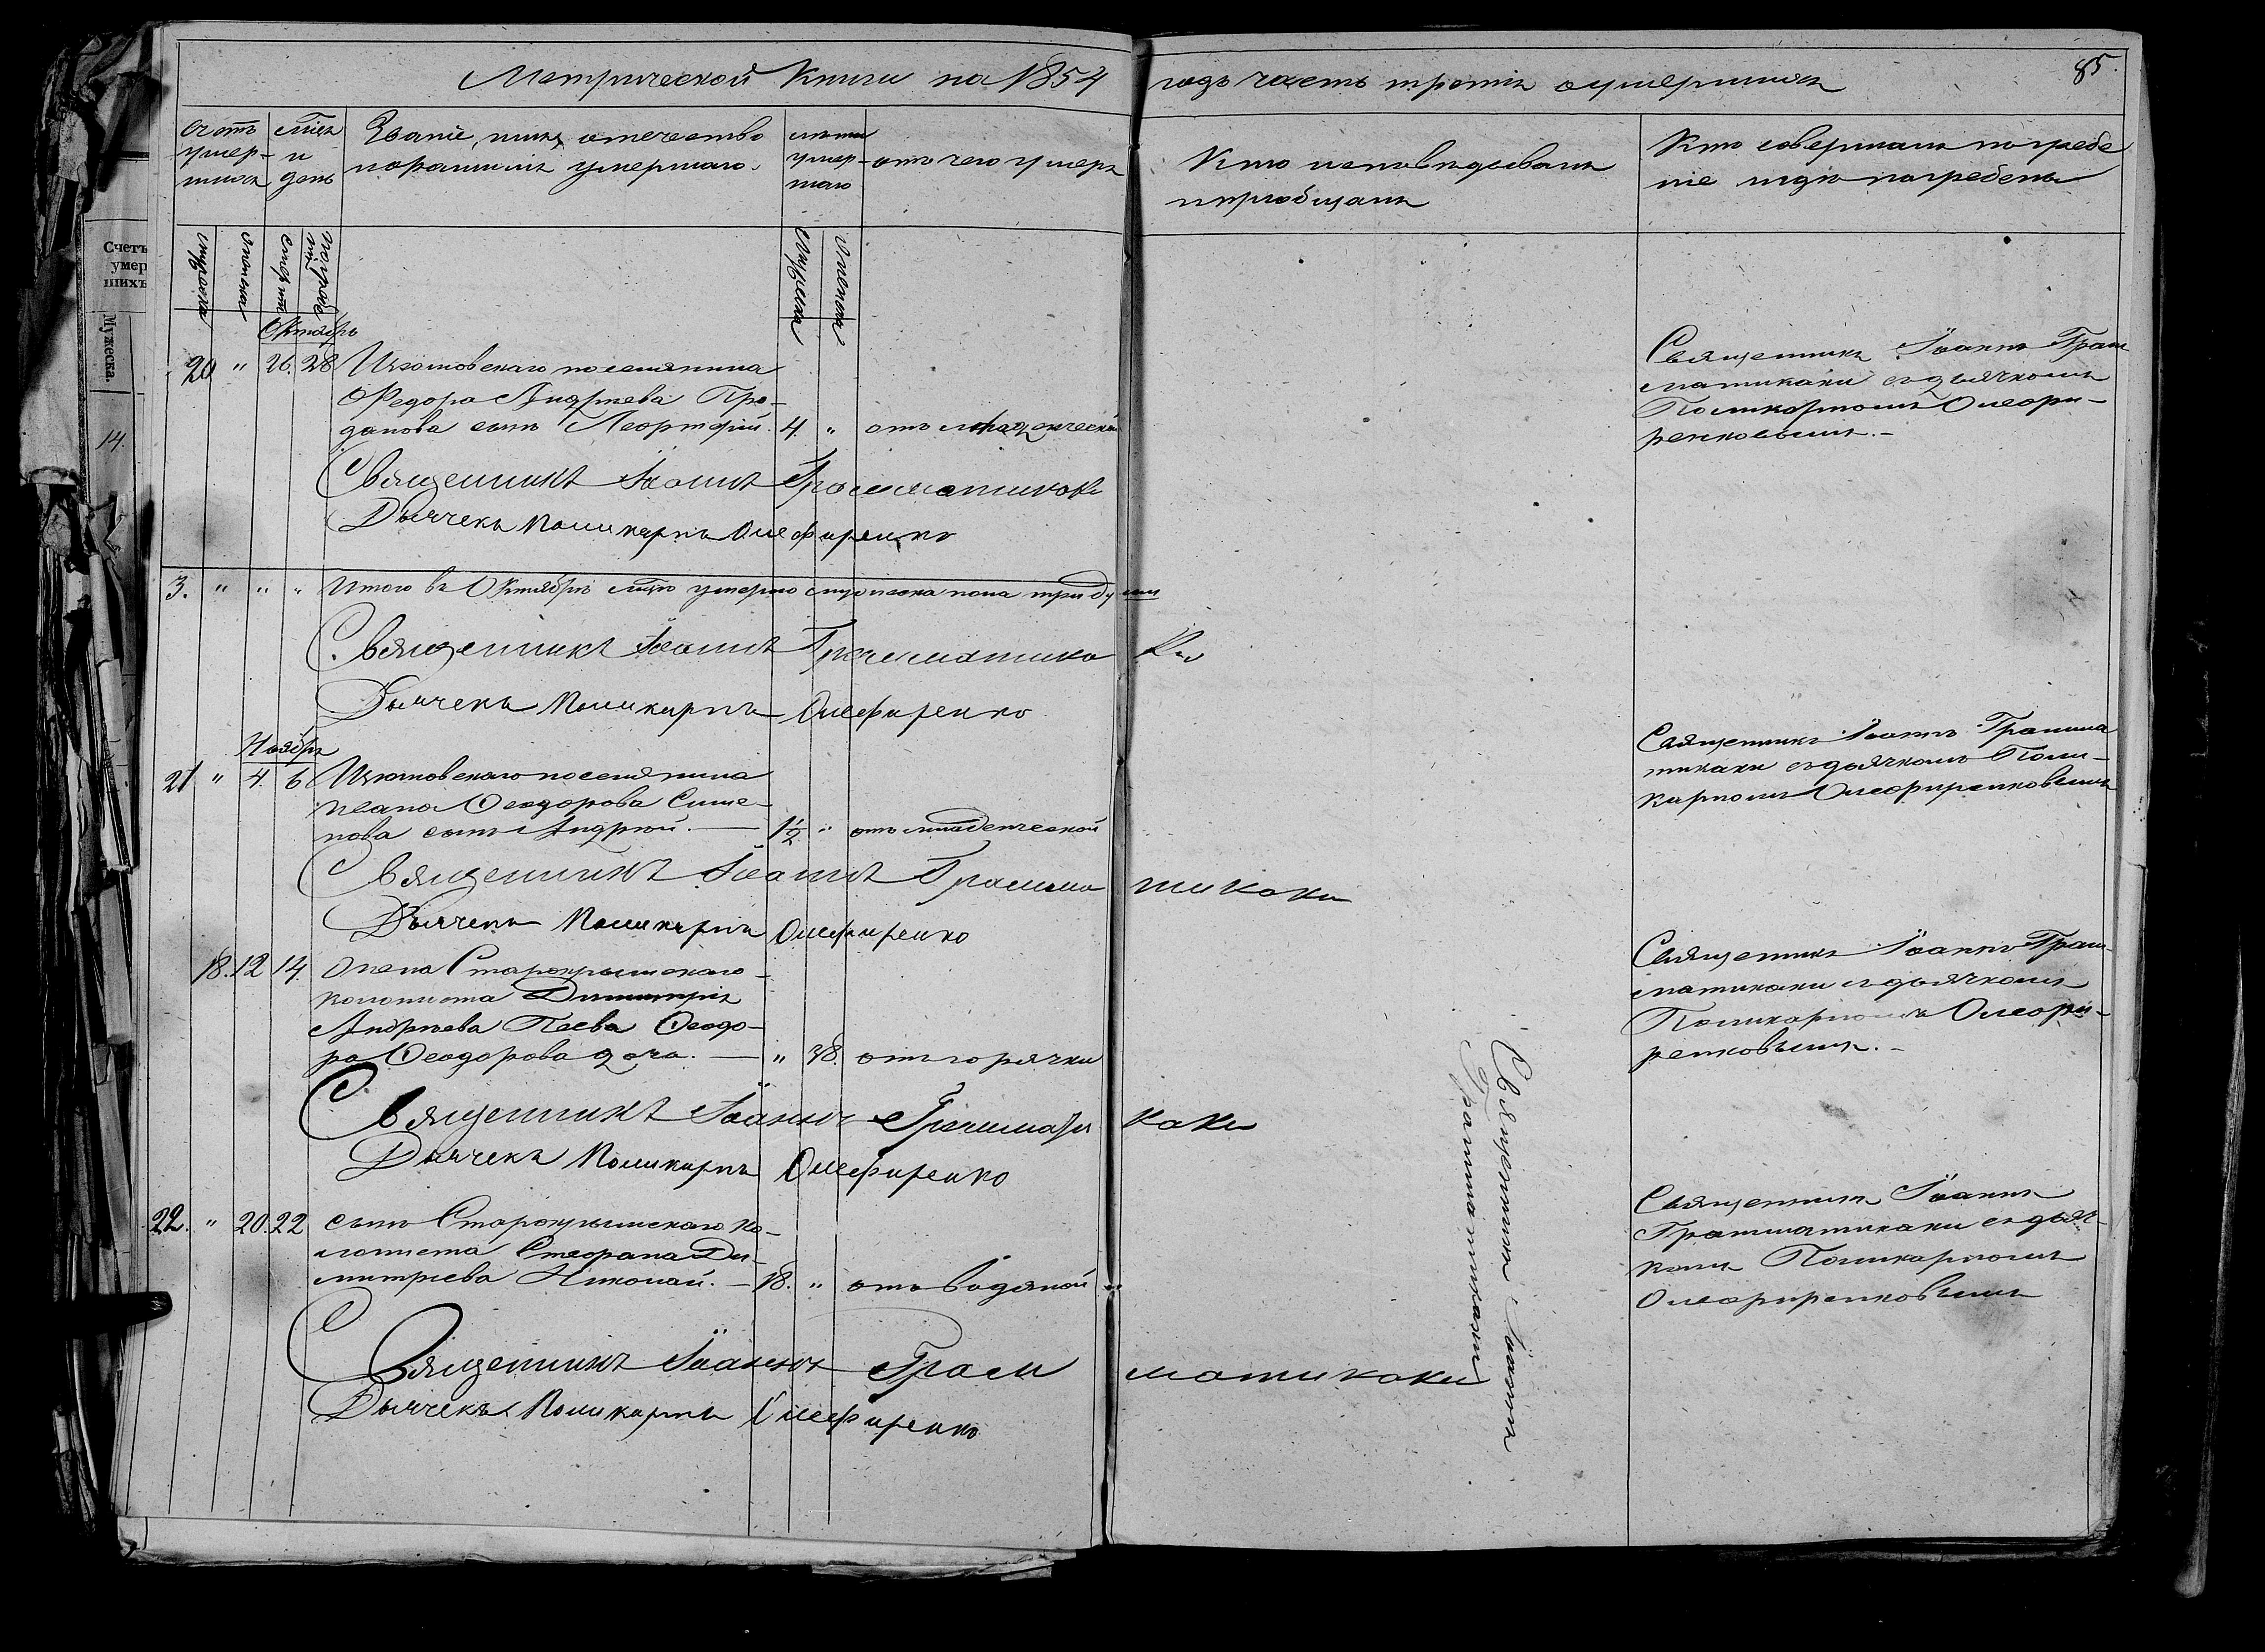 Метрической Книги на 1854 годъ часть третiя о умершихъ
85.
Счетъ умер-шихъ
Мца и день
Званiе, имя, отечество и фамилiя умершаго.
лета умер-шаго
отъ чего умеръ
Кто исповедывалъ и прiобщалъ
Кто совершалъ погребе
нiе и где погребены
мужеска
женска
смерти
погребенiя
мужеска
женска
Октябрь
20 " 26. 28 Изюмовскаго поселянина
Федора Андреева Про-
данова сынъ Георгiй. 4. " отъ младенческой
Священникъ Iоаннъ Грам
матикаки съ дьячкомъ
Поликарпомъ Олефи-
ренковымъ.-
Священникъ Iоаннъ Грамматикаки
Дьячекъ Поликарпъ Олефиренко
3. " " " Итого въ Октябре мце умерло мужеска пола три души
Священникъ Iоаннъ Грамматикаки
Дьячекъ Поликарпъ Олефиренко
Ноябрь
21 " 4. 6 Изюмовскаго поселянина
Ивана Феодорова Симе-
нова сынъ Андрей. 1 1/2 " отъ младенческой
Священникъ Iоаннъ Грамма
тикаки съ дьячкомъ Поли-
карпомъ Олефиренковымъ
Священникъ Iоаннъ Грамматикаки
Дьячекъ Поликарпъ Олефиренко
18. 12 14. Жена Старокрымскаго
колониста Димитрiя
Андреева Пеева Феодо-
ра Феодорова дочь. " 38. отъ горячки
Священникъ Iоаннъ Грам-
матикаки съ дьячкомъ
Поликарпомъ Олефи-
ренковымъ.-
Священникъ Iоаннъ Грамматикаки
Дьячекъ Поликарпъ Олефиренко
22. " 20. 22 сынъ Старокрымскаго ко-
лониста Стефана Ди-
митрiева Николай. 18. " отъ водяной
Священникъ Iоаннъ
Грамматикаки съ дьяч-
комъ Поликарпомъ
Олефиренковымъ
Священникъ Iоаннъ Грамматикаки
Дьячекъ Поликарпъ Олефиренко
Священникъ Iоаннъ
Грамматикаки
Счетъ
умер
шихъ
Мужеска.
14.